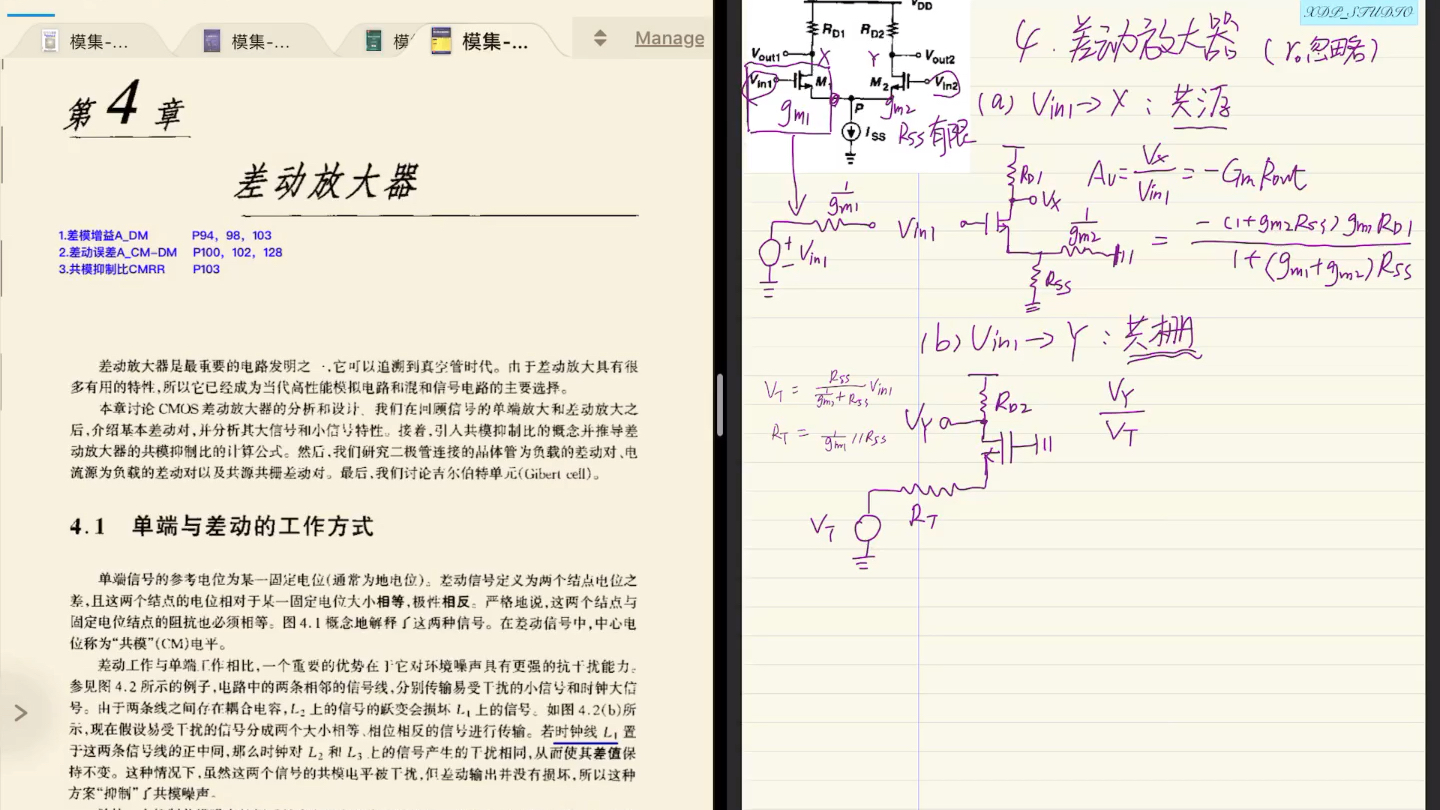 模集-...
模集-...
模
模集-...
Manage
第 4 章
差动放大器
1.差模增益A_DM P94，98，103
2.差动误差A_CM-DM P100，102，128
3.共模抑制比CMRR P103
差动放大器是最重要的电路发明之一,它可以追溯到真空管时代。由于差动放大具有很
多有用的特性,所以它已经成为当代高性能模拟电路和混和信号电路的主要选择。
本章讨论 CMOS 差动放大器的分析和设计。我们在回顾信号的单端放大和差动放大之
后,介绍基本差动对,并分析其大信号和小信号特性。接着,引入共模抑制比的概念并推导差
动放大器的共模抑制比的计算公式。然后,我们研究二极管连接的晶体管为负载的差动对、电
流源为负载的差动对以及共源共栅差动对。最后,我们讨论吉尔伯特单元(Gibert cell)。
4.1 单端与差动的工作方式
单端信号的参考电位为某一固定电位(通常为地电位)。差动信号定义为两个结点电位之
差,且这两个结点的电位相对于某一固定电位大小相等,极性相反。严格地说,这两个结点与
固定电位结点的阻抗也必须相等。图 4.1 概念地解释了这两种信号。在差动信号中,中心电
位称为“共模”(CM)电平。
差动工作与单端工作相比,一个重要的优势在于它对环境噪声具有更强的抗干扰能力。
参见图 4.2 所示的例子,电路中的两条相邻的信号线,分别传输易受干扰的小信号和时钟大信
号。由于两条线之间存在耦合电容,L₂ 上的信号的跃变会损坏 L₁ 上的信号。如图 4.2(b)所
示,现在假设易受干扰的信号分成两个大小相等、相位相反的信号进行传输。若时钟线 L₁ 置
于这两条信号线的正中间,那么时钟对 L₂ 和 L₃ 上的信号产生的干扰相同,从而使其差值保
持不变。这种情况下,虽然这两个信号的共模电平被干扰,但差动输出并没有损坏,所以这种
方案“抑制”了共模噪声。
XDP_STUDIO
VDD
RD1 RD2
Vout1 X Y Vout2
Vin1 M1 M2 Vin2
gm1 P gm2
ISS RSS有限
4.差动放大器 (ro忽略)
(a) Vin1→X : 共源
1/gm1
+
Vin1
−
RD1
VX
Vin1
1/gm2
RSS
Av = VX/Vin1 = −Gm Rout
= −(1+gm2RSS)gm1RD1 / 1+(gm1+gm2)RSS
(b) Vin1→Y : 共栅
VT = RSS/(1/gm1+RSS) Vin1
RT = 1/gm1 // RSS
RD2
VY
RT
VT
VY/VT